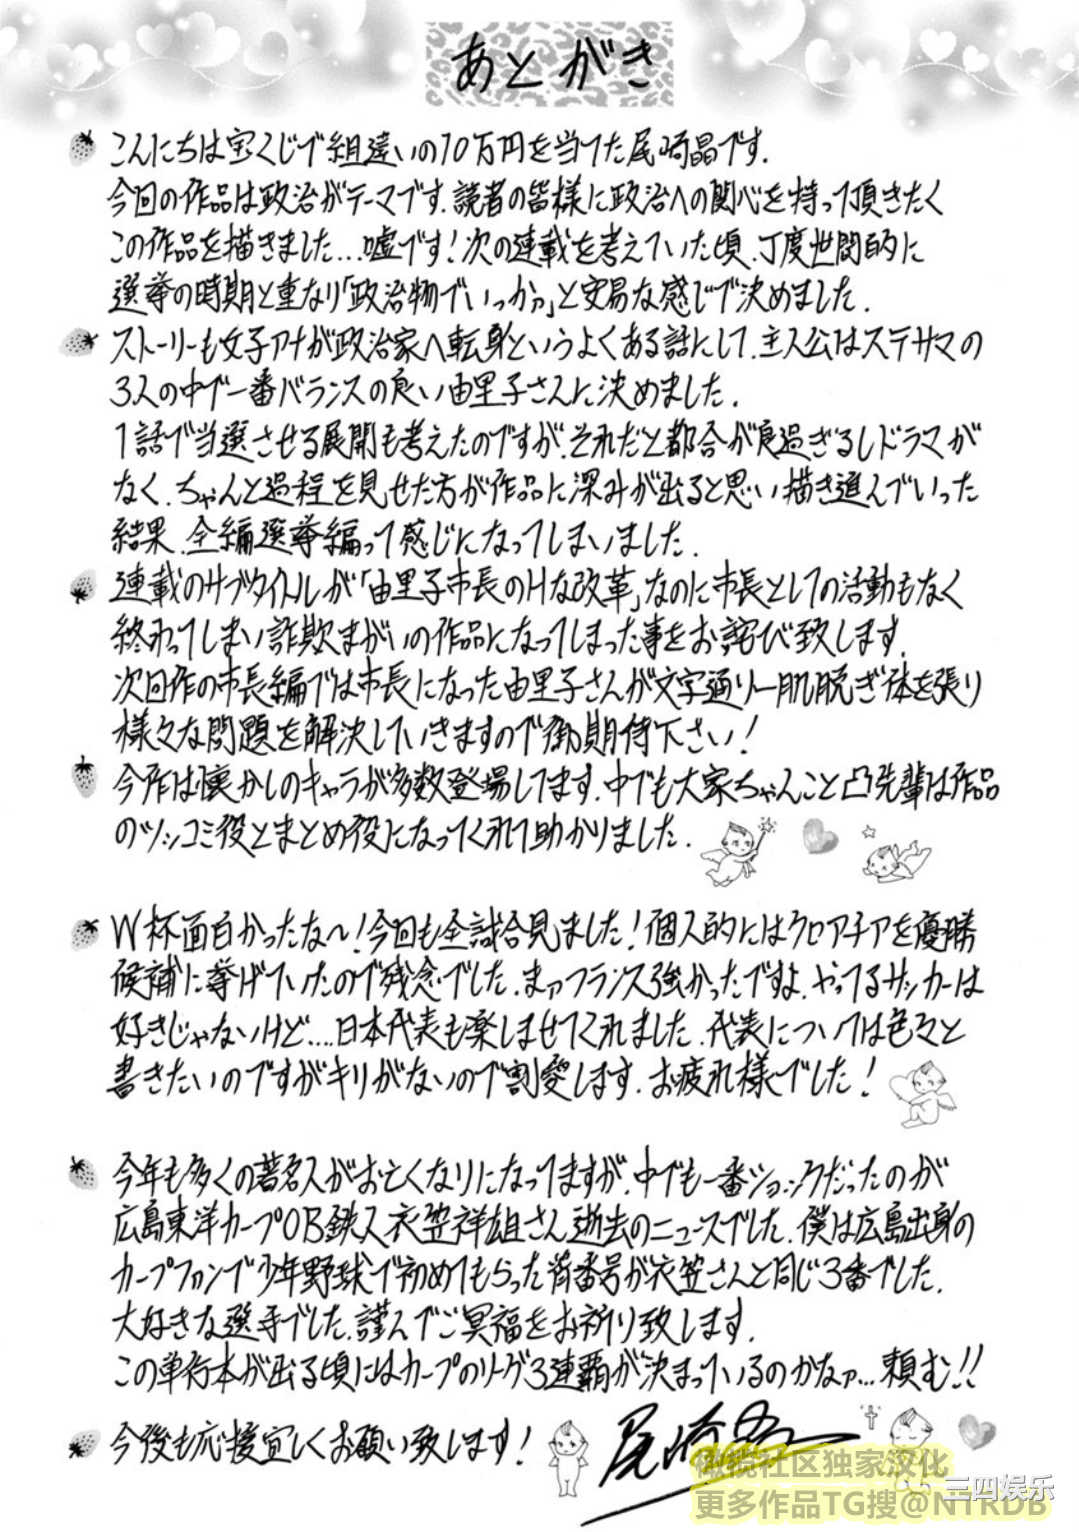 あとがき
こんにちは宝くじで組違いの10万円を当てた尾崎晶です.
今回の作品は政治がテーマです.読者の皆様に政治への関心を持って頂きたく
この作品を描きました...嘘です!次の連載を考えていた頃、丁度世間的に
選挙の時期と重なり「政治物でいっかァ」と安易な感じで決めました.
ストーリーも女子アナが政治家へ転身というよくある話にして、主人公はステサマの
3人の中で一番バランスの良い由里子さんに決めました.
1話で当選させる展開も考えたのですが、それだと都合が良過ぎるしドラマが
なく、ちゃんと過程を見せた方が作品に深みが出ると思い描き進んでいった
結果、全編選挙編って感じになってしまいました.
連載のサブタイトルが「由里子市長のHな改革」なのに市長としての活動もなく
終わってしまい詐欺まがいの作品になってしまった事をお詫び致します.
次回作の市長編では市長になった由里子さんが文字通り一肌脱ぎ体を張り
様々な問題を解決していきますので御期待下さい!
今作は懐かしのキャラが多数登場してます.中でも大家ちゃんこと凸先輩は作品
のツッコミ役とまとめ役になってくれて助かりました.
W杯面白かったな〜!今回も全試合見ました!個人的にはクロアチアを優勝
候補に挙げていたので残念でした.まァフランス強かったですよ.やってるサッカーは
好きじゃないけど....日本代表も楽しませてくれました.代表については色々と
書きたいのですがキリがないので割愛します.お疲れ様でした!
今年も多くの著名人がお亡くなりになってますが、中でも一番ショックだったのが
広島東洋カープOB鉄人衣笠祥雄さん逝去のニュースでした.僕は広島出身の
カープファンで少年野球で初めてもらった背番号が衣笠さんと同じ3番でした.
大好きな選手でした.謹んでご冥福をお祈り致します.
この単行本が出る頃にはカープのリーグ3連覇が決まっているのかなァ...頼む!!
今後も応援宜しくお願い致します!
尾崎晶
橄榄社区独家汉化
更多作品TG搜@NTRDB
三四娱乐